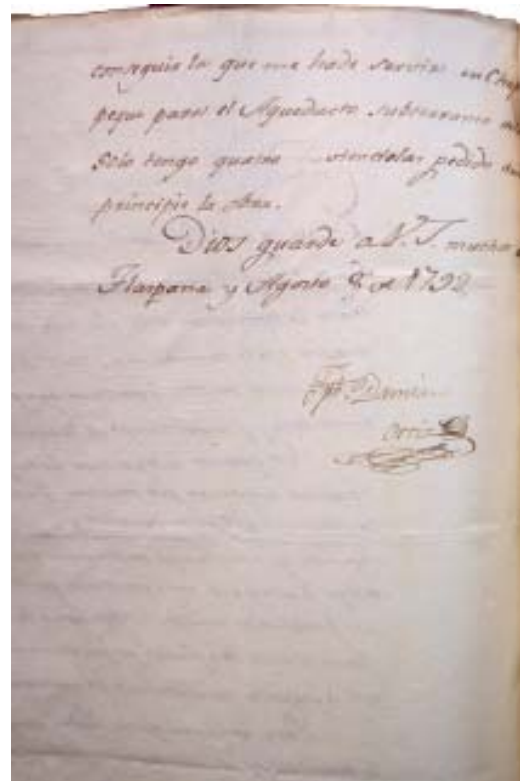 conseguir la que me hade servir en Chap
peque para el Aqueducto subterraneo
solo tengo quatro pedido
principie la obra.
Dios guarde a V. S. muchos
Tlaxpana y Agosto 8 de 1792
Damian
Ortiz